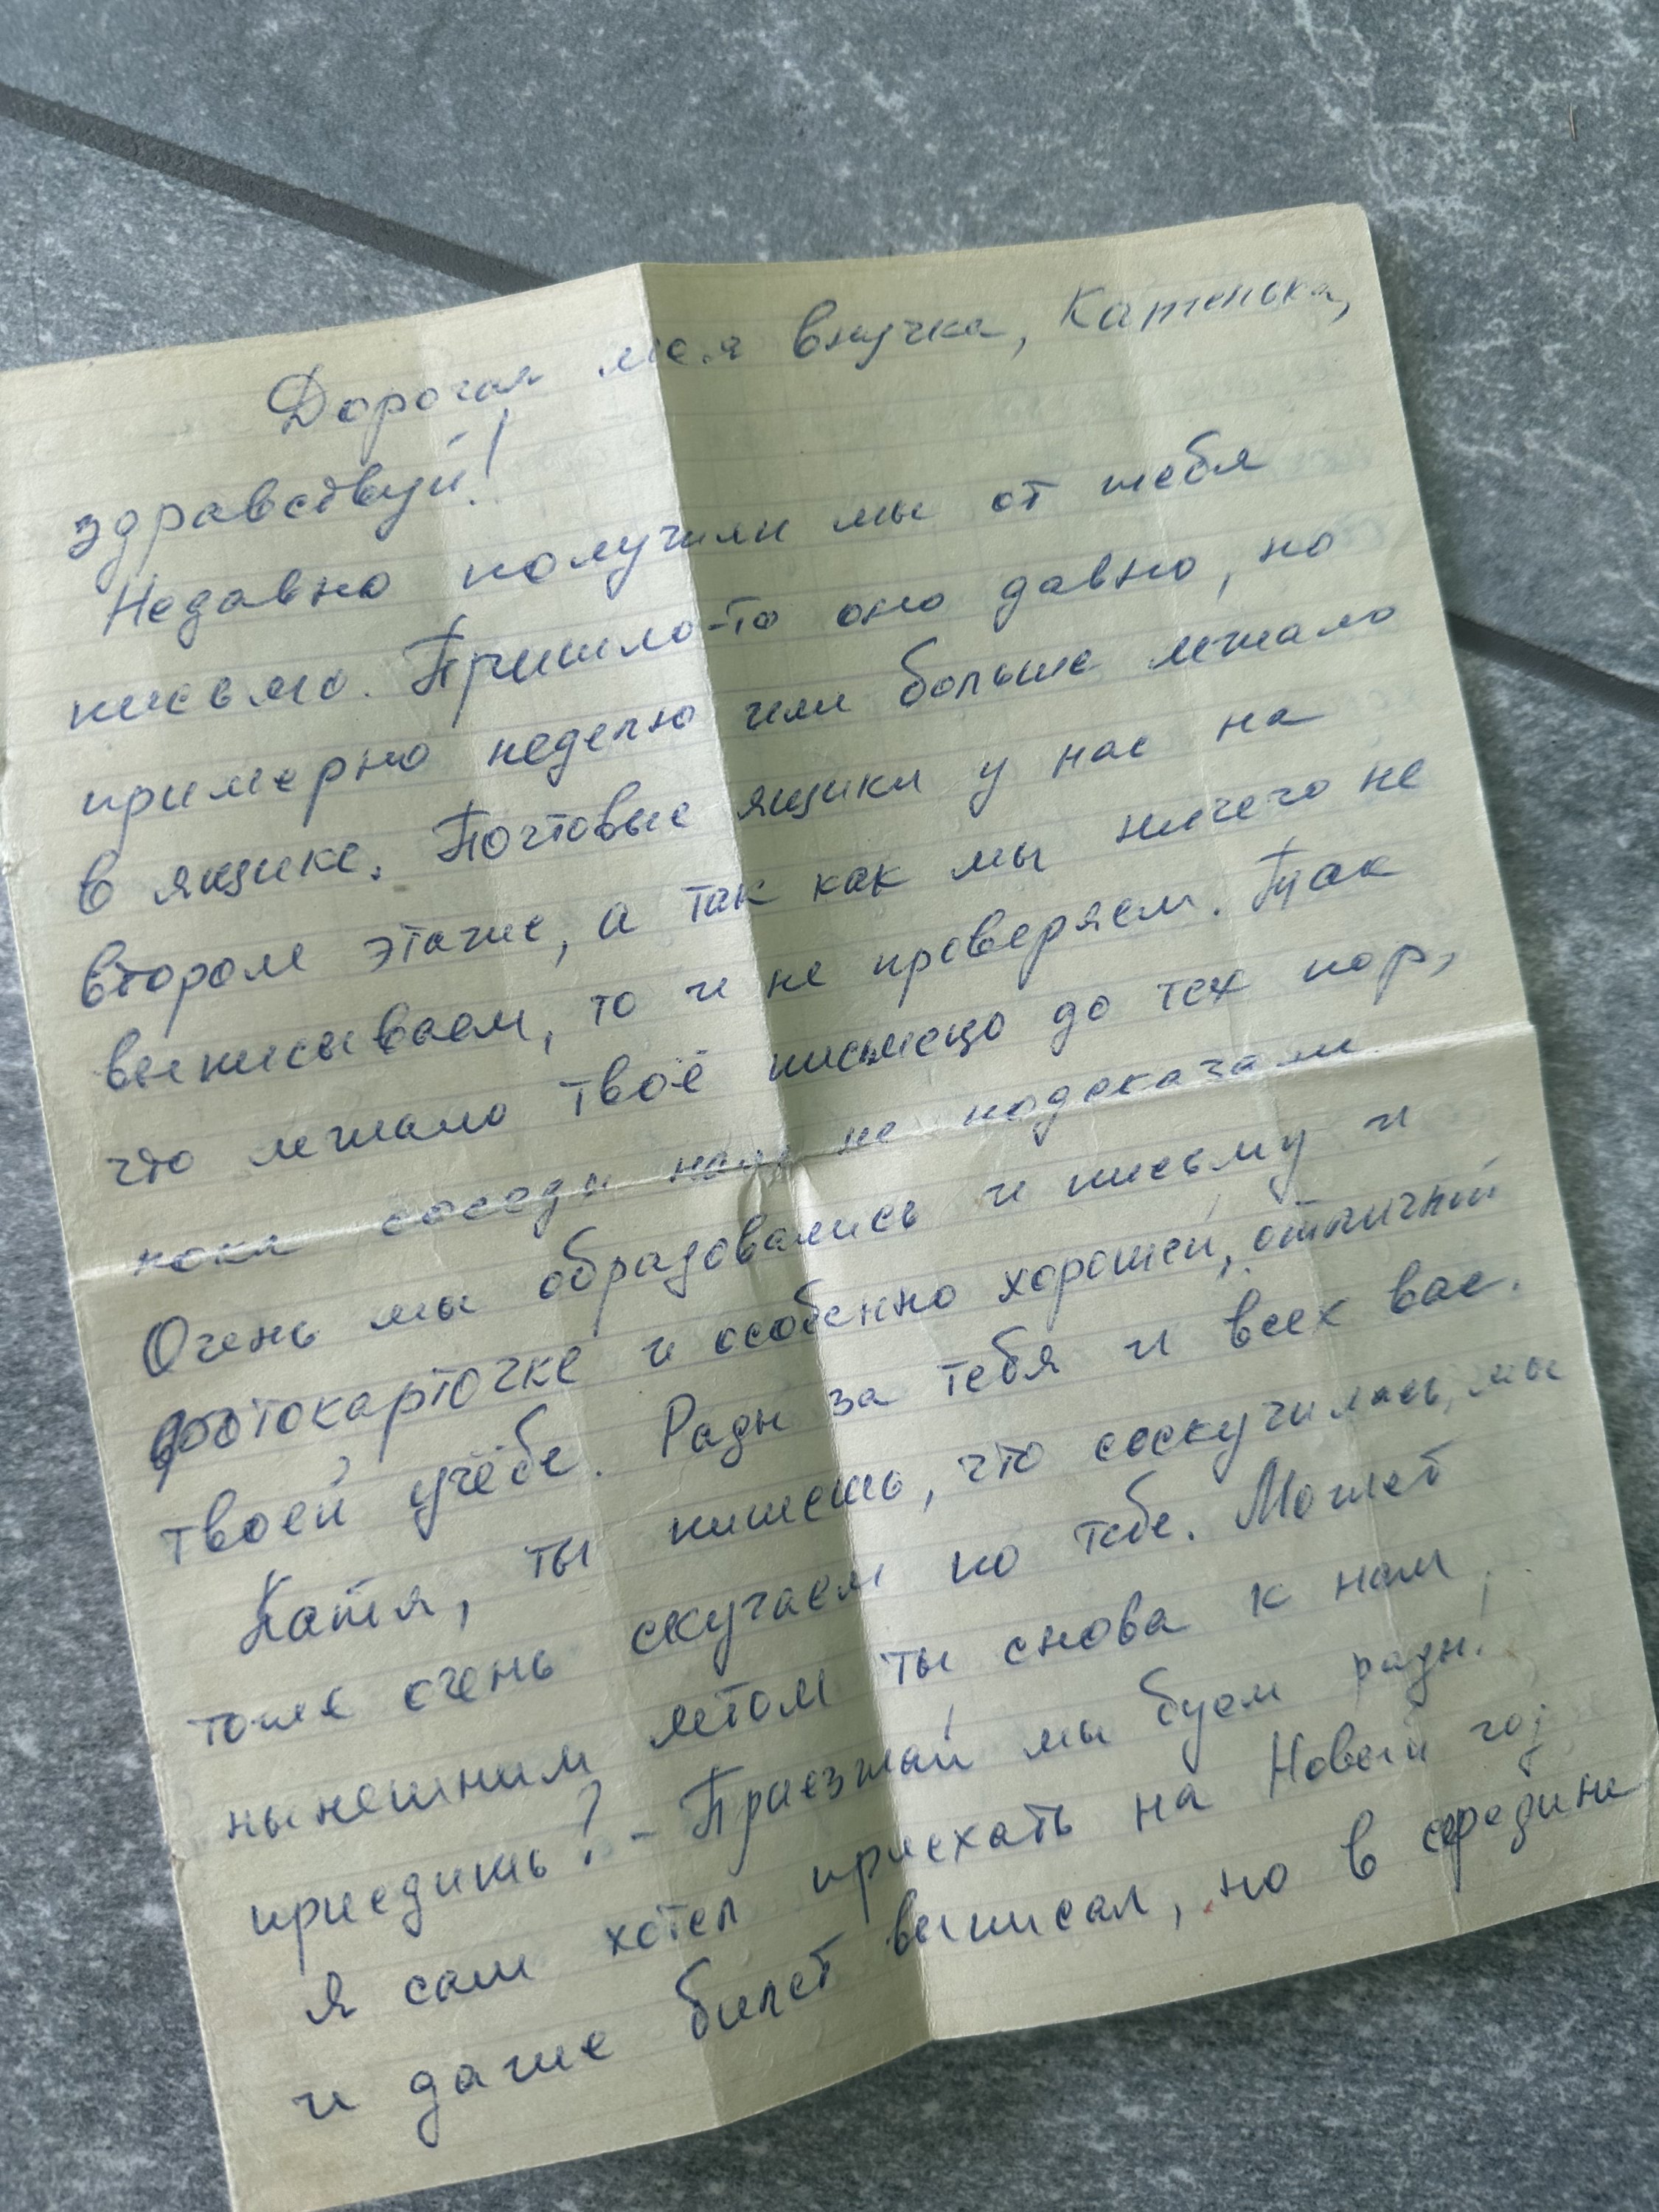 Дорогая моя внучка, Катенька,
здравствуй!
Недавно получили мы от тебя
письмо. Пришло-то оно давно, но
примерно неделю или больше лежало
в ящике. Почтовые ящики у нас на
втором этаже, а так как мы ничего не
выписываем, то и не проверяем. Так
что лежало твоё письмецо до тех пор,
пока соседи нам не подсказали.
Очень мы обрадовались и письму и
фотокарточке и особенно хорошей, отличной
твоей учёбе. Рады за тебя и всех вас.
Катя, ты пишешь, что соскучилась, мы
тоже очень скучаем по тебе. Может
нынешним летом ты снова к нам
приедишь? - Приезжай мы буем рады!
Я сам хотел приехать на Новый год
и даже билет выписал, но в середине